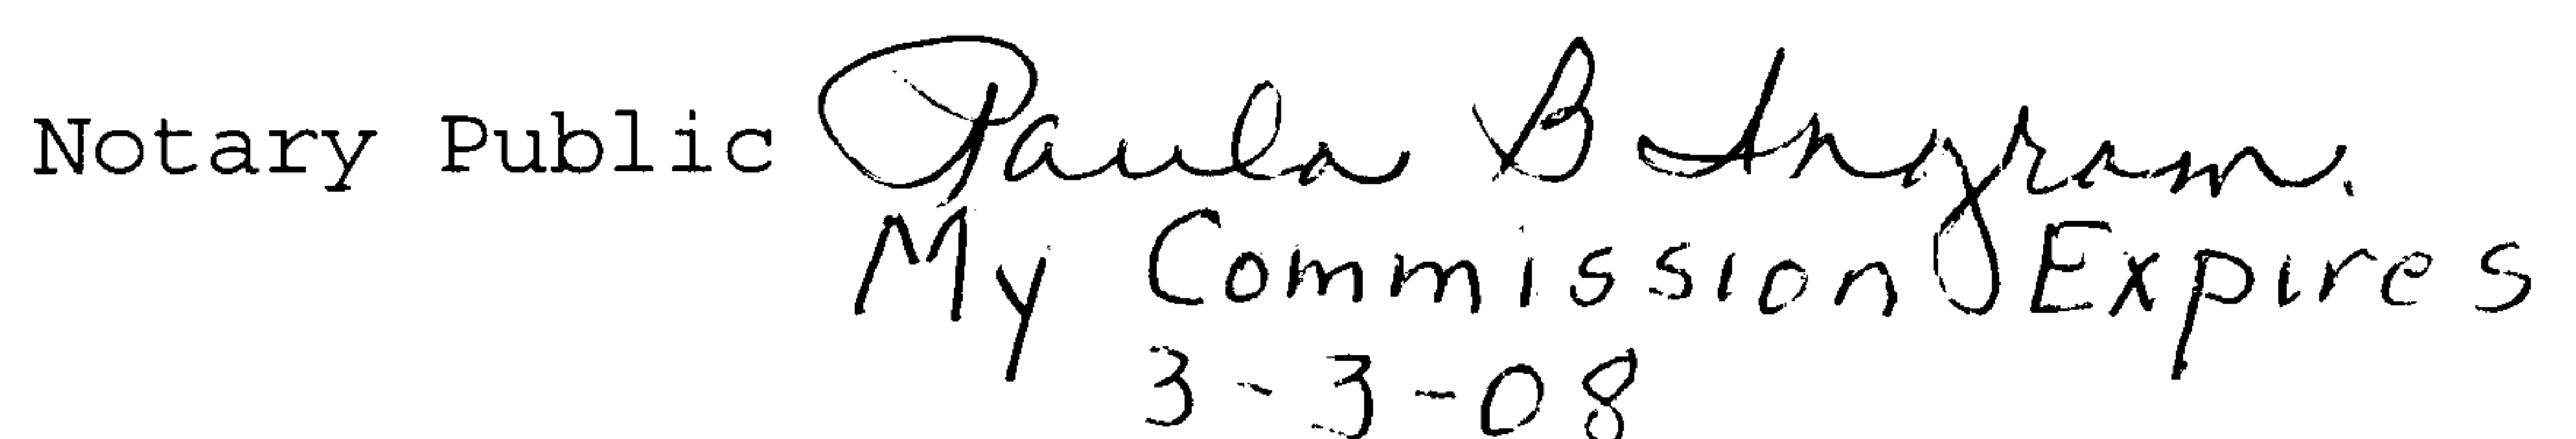 Notary Public Paula B Ingram.
My Commission Expires
3-3-08